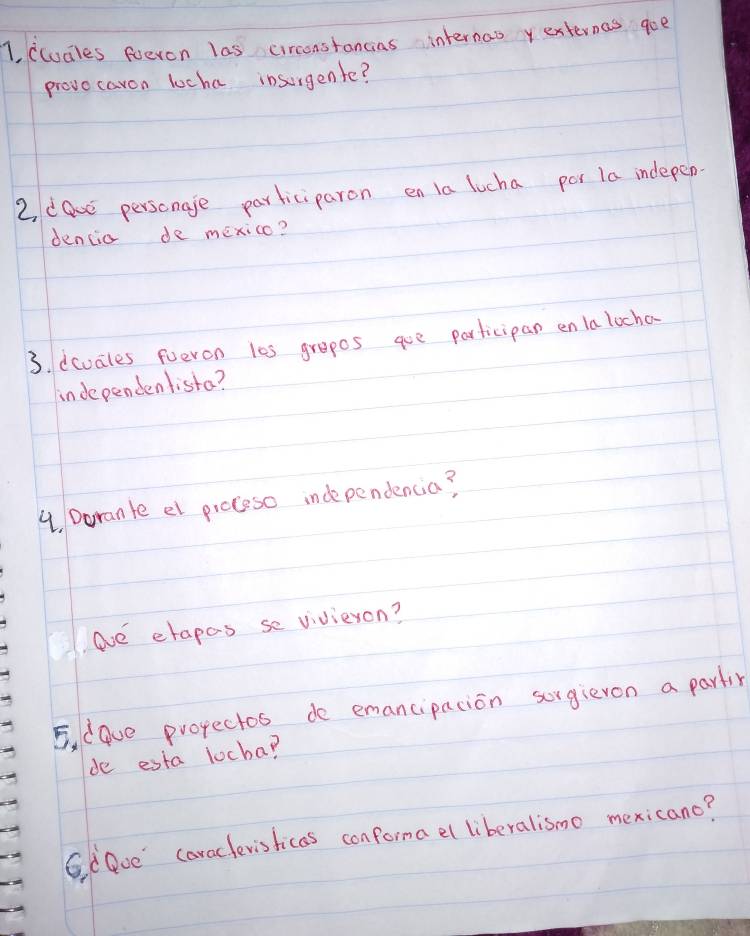 1. ¿cuáles fueron las circunstancias internas y externas que
provocaron lucha insurgente?
2. ¿Qué personaje participaron en la lucha por la indepen-
dencia de méxico?
3. ¿cuales fueron los grupos que participan en la lucha
independentista?
4. Durante el proceso independencia?
Qué etapas se vivieron?
5. ¿Que proyectos de emancipación surgieron a partir
de esta lucha?
6. ¿Qué caracteristicas conforma el liberalismo mexicano?